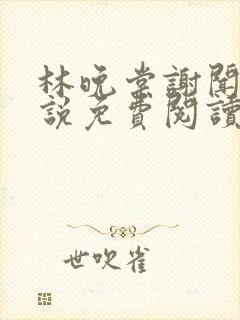 林晚棠謝聞
說免費閱讀
世吹雀